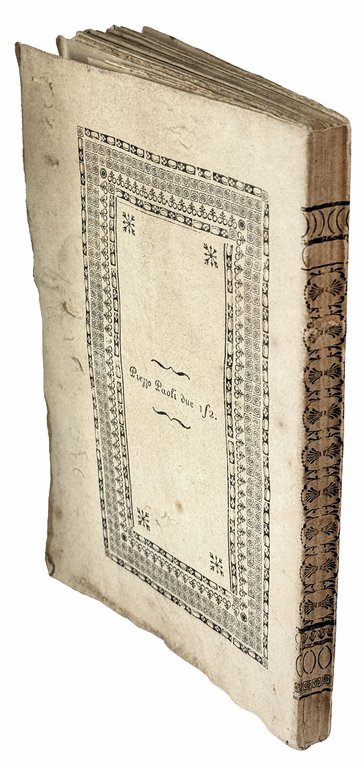 Prezzo Paoli due 1/2.